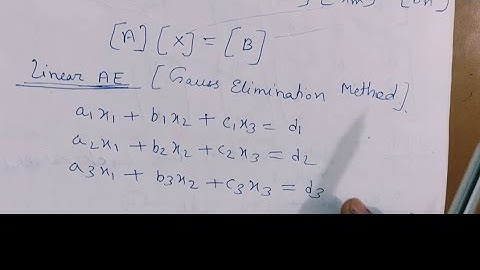 [A] [X] = [B]
Linear AE [Gauss Elimination Method].
a₁x₁ + b₁x₂ + c₁x₃ = d₁
a₂x₁ + b₂x₂ + c₂x₃ = d₂
a₃x₁ + b₃x₂ + c₃x₃ = d₃